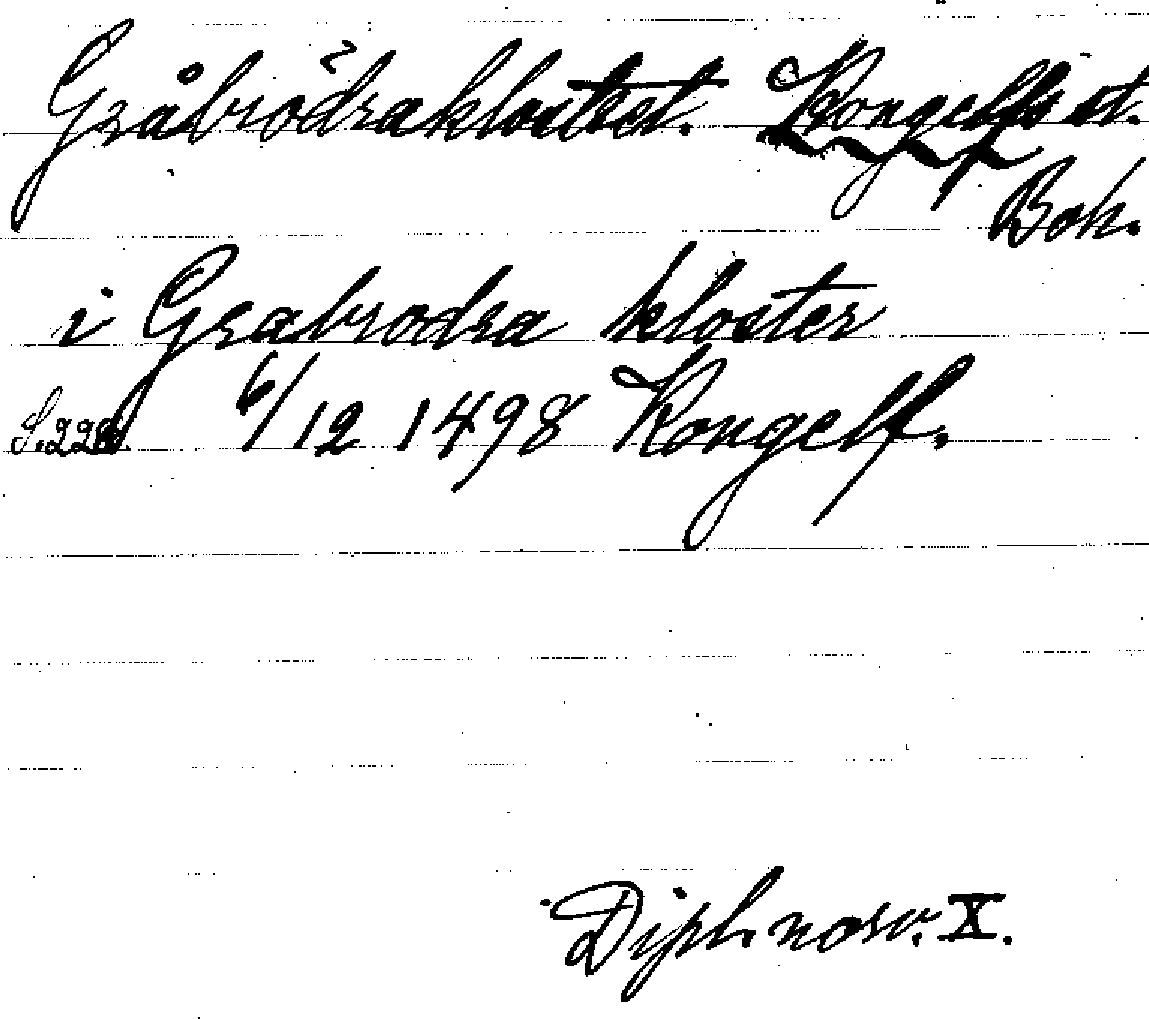 Gråbrödraklostret. Kongelfs st.
Boh.
i Grabrodra kloster
6/12 1498 Kongelf.
Dipl. norv. X.